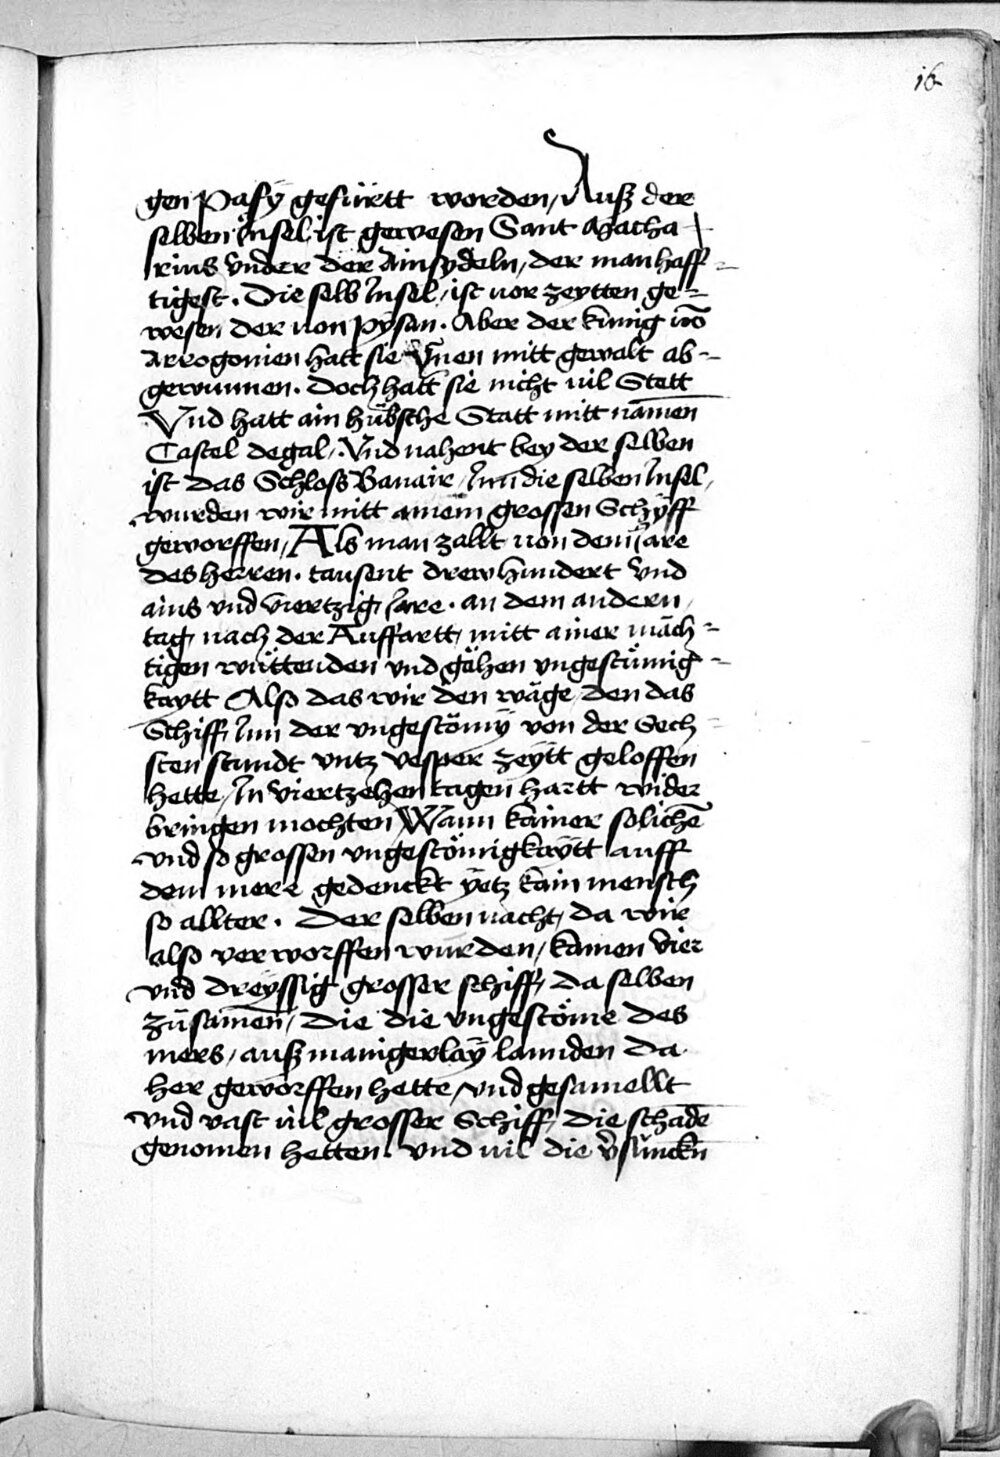 16
gen Pafÿ gefürtt worden / Auß der
selben Insel ist gewesen Sant Macha
rius vnder der Ainsydeln, der manhaff=
tigest. Die selb Insel / ist vor zeytten ge=
wesen der von Pÿsan. Aber der künig vō
Arrogonien hatt sie Ynen mitt gewalt ab=
gewunnen. Doch hatt sie nicht vil Stett
Vnd hatt ain hübsche Statt mitt namen
Castel degal, Vnd nahent bey der selben
ist das Schloß Banair / Inn die selben Insel,
wurden wir mitt ainem grossen Schÿff
geworffen / Als man zallt von dem Jare
des herren. tausent drew hundert vnd
ains vnd viertzig Jare. an dem andern
tag nach der Auffartt, mitt ainer mäch=
tigen wüttenden vnd gähen vngestümig=
kaytt Also das wir den wäge, den das
Schiff Inn der vngestömÿ von der Sech=
sten stundt vntz vesper zeÿtt geloffen
hette / In viertzehen tagen hartt wider
bringen mochten Wann kainer solichē
vnd so grossen vngestömigkaÿtt auff
dem mere gedenckt ÿetz kain mensch
so allter. Der selben nacht, da wir
also verworffen wurden / kamen vier
vnd dreÿssig grosser schiff, da selben
zůsamen / Die die vngestöme des
mers / auß manigerlaÿ lannden da
her geworffen hette / vnd gesamellt
vnd vast vil grosser Schiff, die schadē
genomen hetten. vnd vil die v̄sunckn̄